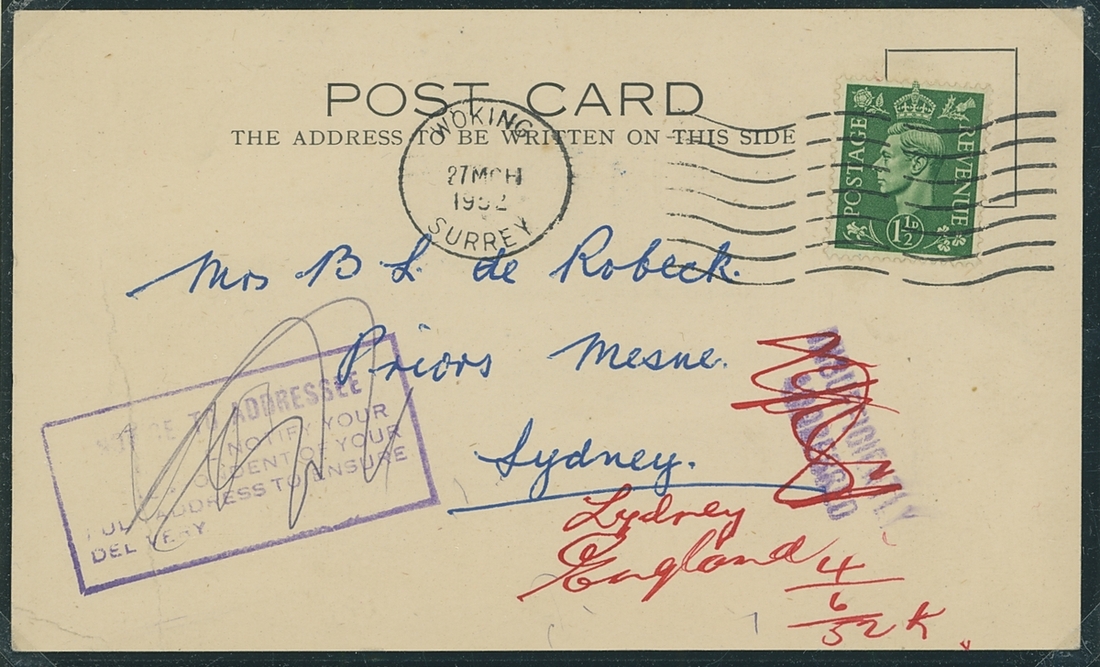 POST CARD
THE ADDRESS TO BE WRITTEN ON THIS SIDE
WOKING
27 MCH
1952
SURREY
POSTAGE
REVENUE
1½D
Mrs B L. de Robeck.
Priors Mesne.
Sydney.
Lydney
England
4
6
52 K
NOTICE TO ADDRESSEE
NOTIFY YOUR
OF YOUR
FULL ADDRESS TO ENSURE
DELIVERY